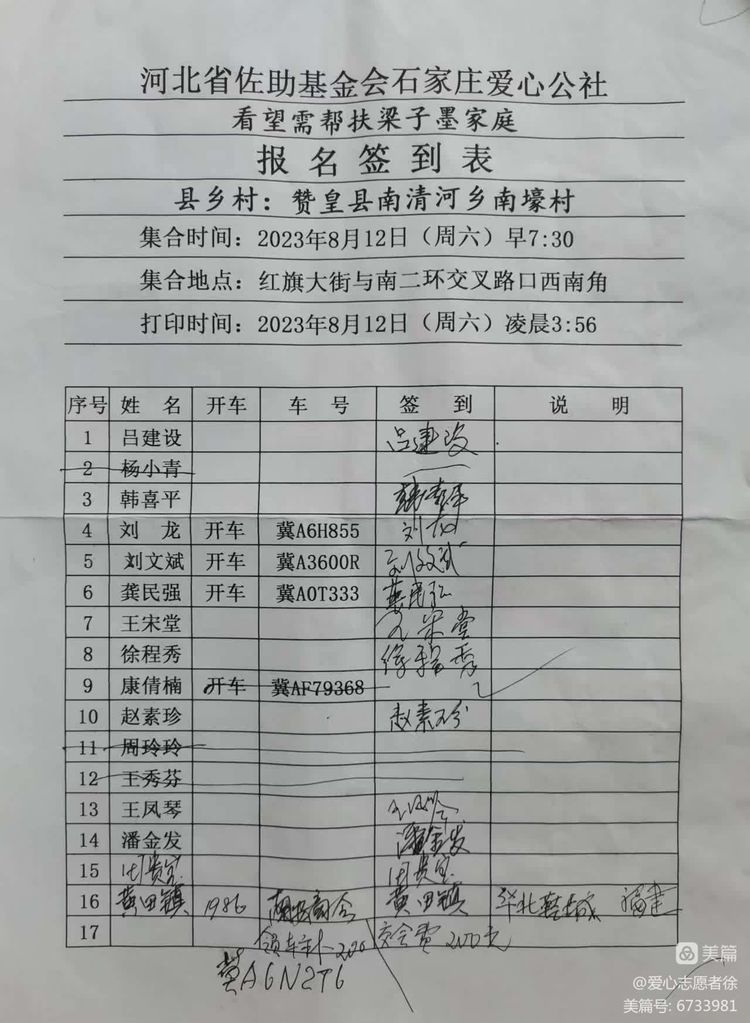 河北省佐助基金会石家庄爱心公社
看望需帮扶梁子墨家庭
报名签到表
县乡村：赞皇县南清河乡南壕村
集合时间：2023年8月12日（周六）早7:30
集合地点：红旗大街与南二环交叉路口西南角
打印时间：2023年8月12日（周六）凌晨3:56
序号 姓 名 开车 车 号 签 到 说 明
1 吕建设 吕建设
2 杨小青
3 韩喜平 韩喜平
4 刘 龙 开车 冀A6H855 刘龙
5 刘文斌 开车 冀A3600R 刘文斌
6 龚民强 开车 冀A0T333 龚民强
7 王宋堂 王宋堂
8 徐程秀 徐程秀
9 康倩楠 开车 冀AF79368
10 赵素珍 赵素珍
11 周玲玲
12 王秀芬
13 王凤琴
14 潘金发 潘金发
15 田贵宝 田贵宝
16 黄田镇 1986 黄田镇 华北鞋城 福建
17 交会费200元
冀A6N2T6
美篇
@爱心志愿者徐
美篇号: 6733981